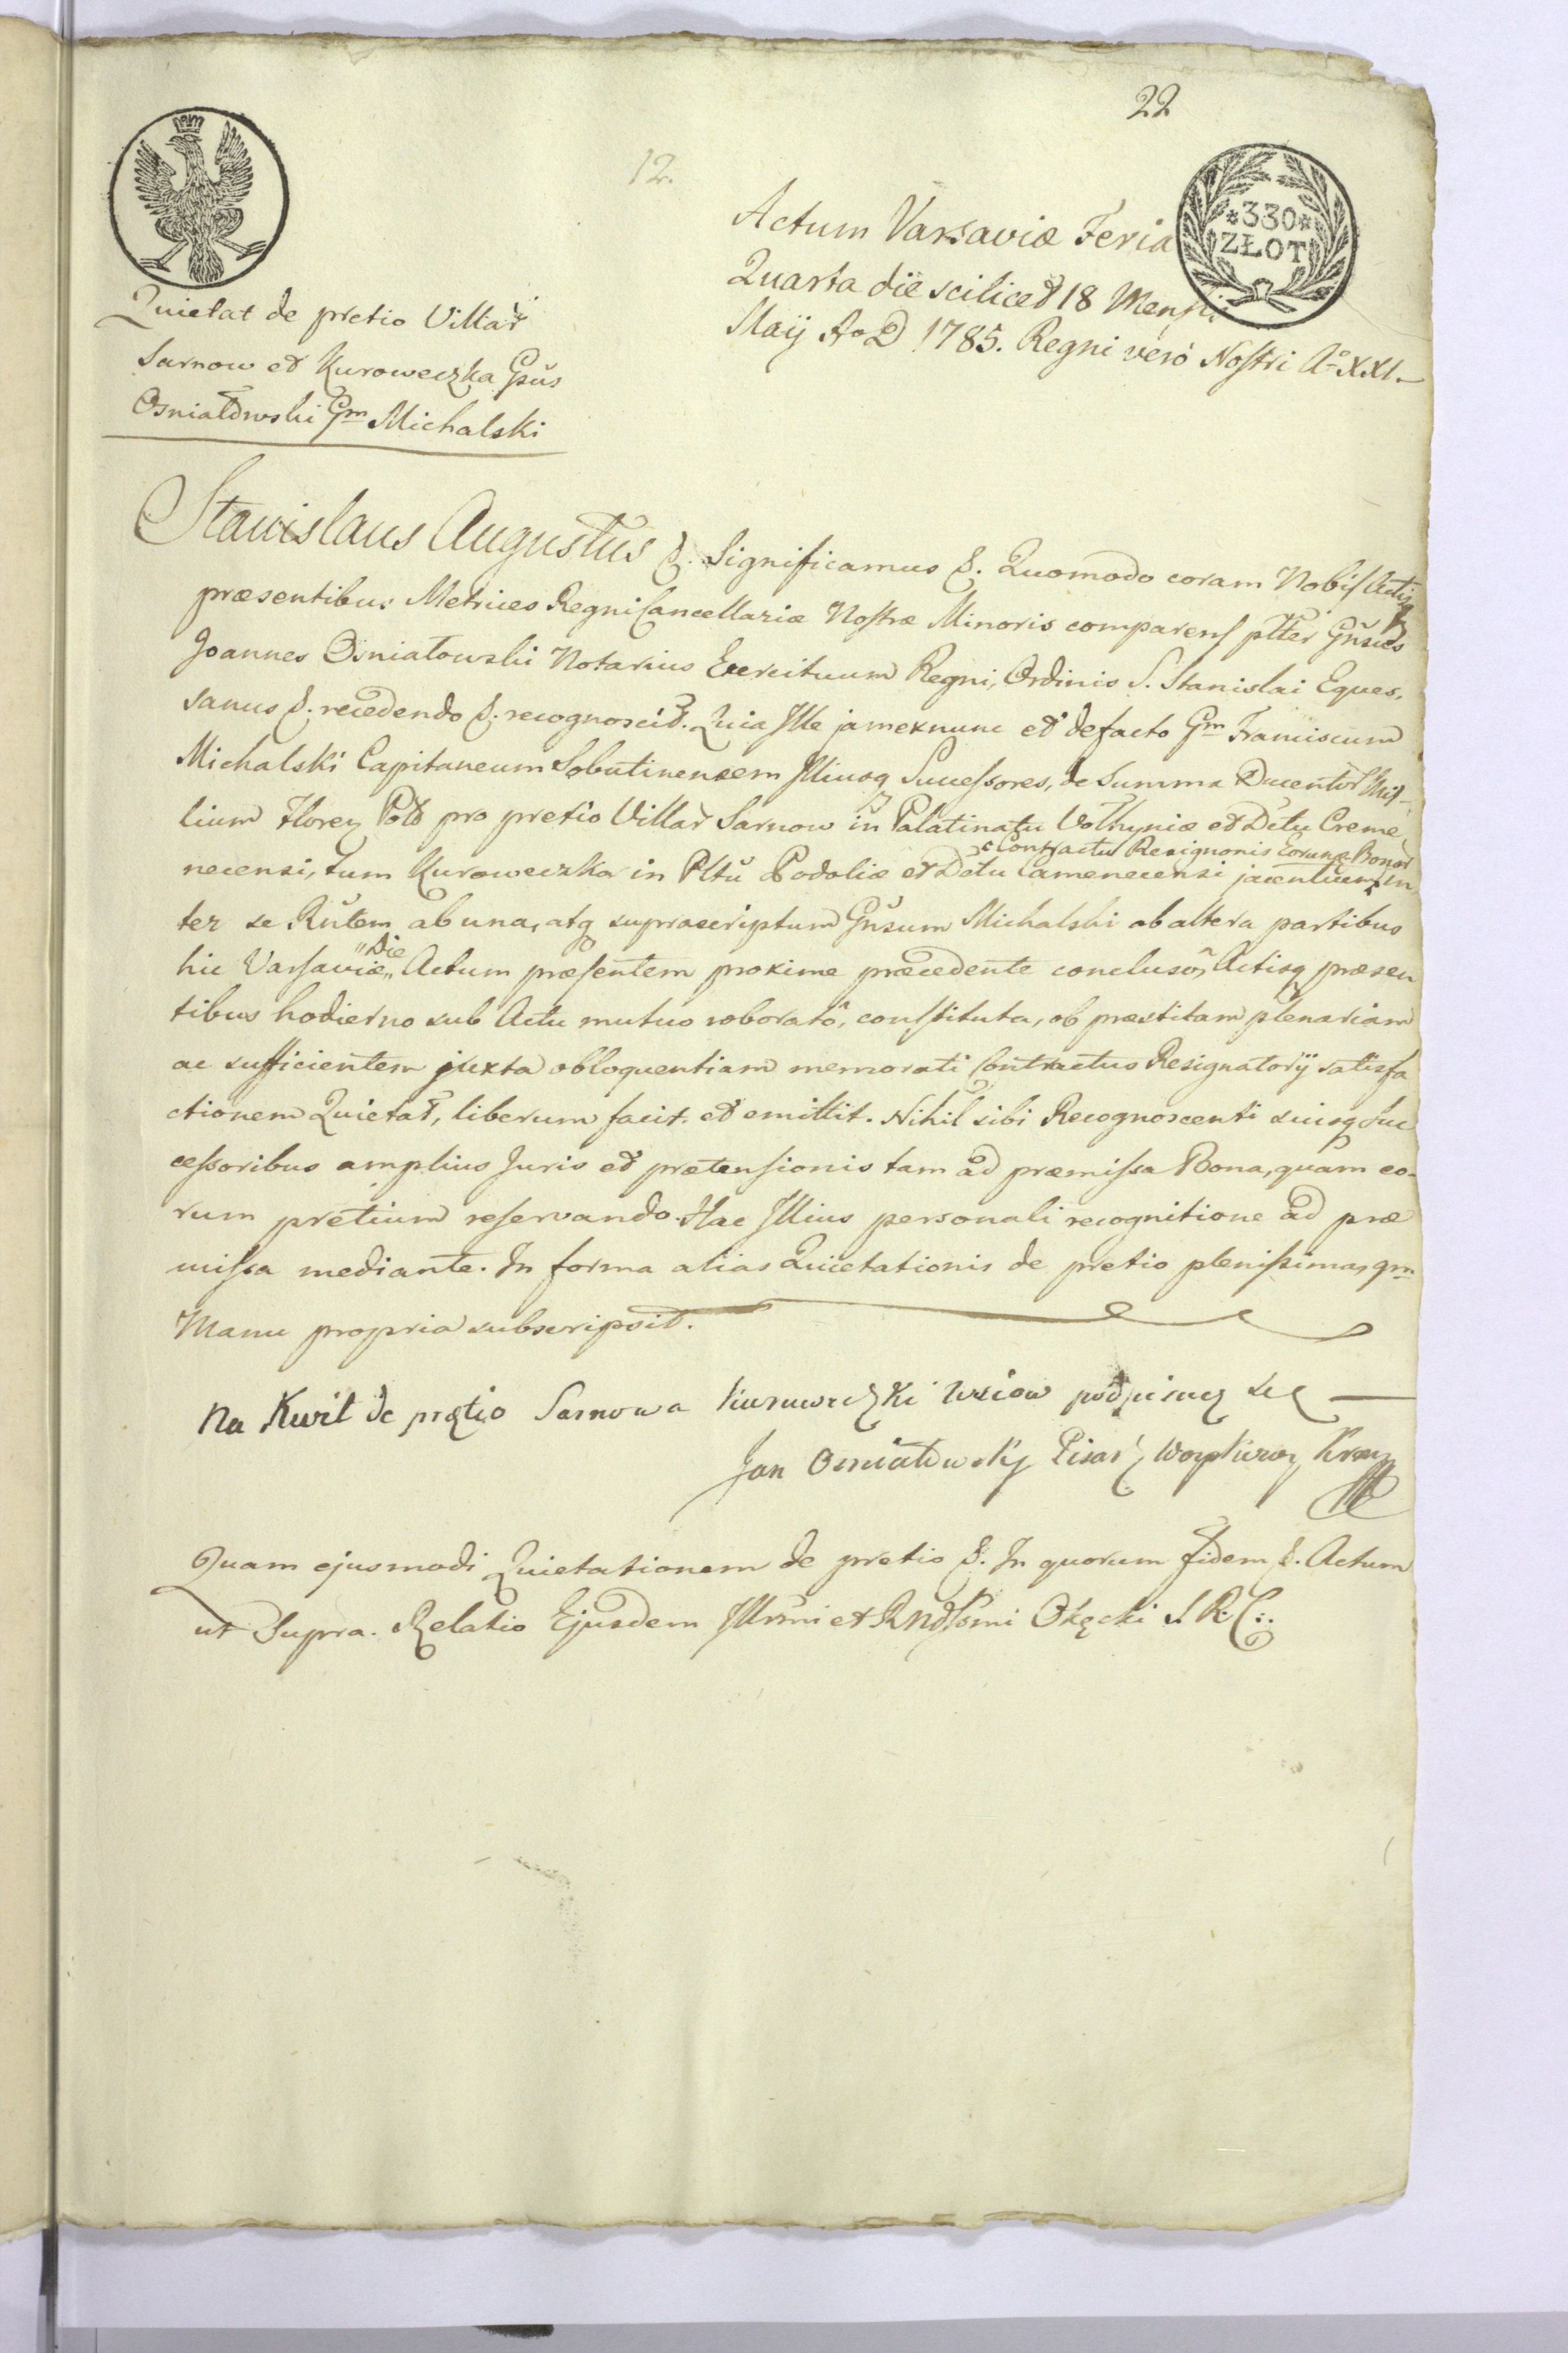 22
12.
*330*
ZŁOT
Actum Varsaviæ Feria
Quarta die scilicet 18 Mensis
Maij AoD 1785. Regni verò Nostri A° XXI.
Quietat de pretio Villar
Sarnow et Kuroweczka Gsus
Osniałowski Gm Michalski
Stanislaus Augustus &. Significamus &. Quomodo coram Nobis Actisq
præsentibus Metrices Regni Cancellariæ Nostræ Minoris comparens pltter Gnsus
Joannes Osniałowski Notarius Exercituum Regni, Ordinis S. Stanislai Eques,
sanus &. recedendo &. recognoscit. Quia Ille jam exnunc et defacto Gm Franciscum
Michalski Capitaneum Sobutinensem Illiusq Successores, de Summa Ducentor Mil-
lium Floren Pold pro pretio Villar Sarnow in Palatinatu Volhyniæ et Dctu Creme
necensi, tum Kuroweczka in Pltu Podoliæ et Dctu Camenecensi jacentium in
Contractu Resignonis Eorum Bonor
ter se Rntem ab una, atq suprascriptum Gnsum Michalski ab altera partibus
hic Varsaviæ „Die„ Actum præsentem proxime præcedente conclusô, Actisq præsen
tibus hodierno sub Actu mutuo roboratô, constituta, ob præstitam plenariam
ac sufficientem juxta obloquentiam memorati Contractus Resignatorij satisfa
ctionem Quietat, liberum facit et emittit. Nihil sibi Recognoscenti suisq Suc
cessoribus amplius Juris et prætensionis tam ad præmissa Bona, quàm eo-
rum pretium reservando. Hac Illius personali recognitione ad præ
missa mediante. In forma alias Quietationis de pretio plenissima, qm
Manu propria subscripsit.
Na Kwit de prętio Sarnowa Kuruweczki wsiow podpisuę się
Jan Osniałowsky Pisarz Woysk Kor
Quam ejusmodi Quietationem de pretio &. In quorum fidem &. Actum
ut Supra. Relatio Ejusdem Illrmi et Rndssmi Okęcki S. R. C:.